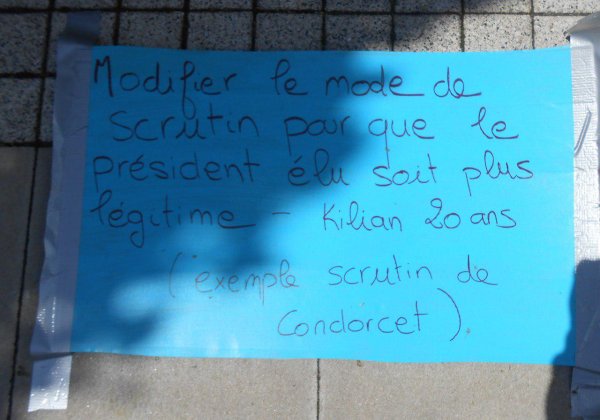 Modifier le mode de
scrutin pour que le
président élu soit plus
légitime - Kilian 20 ans
(exemple scrutin de
Condorcet).